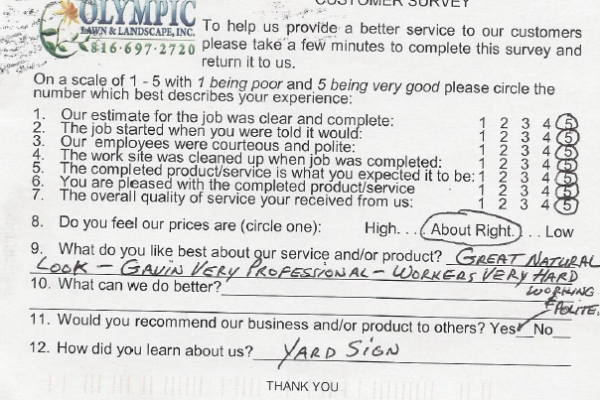 CUSTOMER SURVEY
OLYMPIC
LAWN & LANDSCAPE, INC.
816-697-2720
To help us provide a better service to our customers
please take a few minutes to complete this survey and
return it to us.
On a scale of 1 - 5 with 1 being poor and 5 being very good please circle the
number which best describes your experience:
1. Our estimate for the job was clear and complete: 1 2 3 4 5
2. The job started when you were told it would: 1 2 3 4 5
3. Our employees were courteous and polite: 1 2 3 4 5
4. The work site was cleaned up when job was completed: 1 2 3 4 5
5. The completed product/service is what you expected it to be: 1 2 3 4 5
6. You are pleased with the completed product/service 1 2 3 4 5
7. The overall quality of service your received from us: 1 2 3 4 5
8. Do you feel our prices are (circle one): High. . . About Right. . . Low
9. What do you like best about our service and/or product? GREAT NATURAL
LOOK - GAVIN VERY PROFESSIONAL - WORKERS VERY HARD
WORKING
& POLITE.
10. What can we do better?
11. Would you recommend our business and/or product to others? Yes ✓ No
12. How did you learn about us? YARD SIGN
THANK YOU